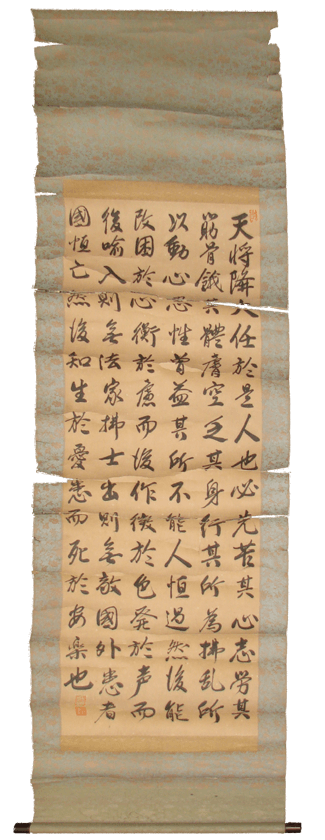 天將降大任於是人也必先苦其心志勞其
筋骨餓其體膚空乏其身行其所為拂乱所
以動心忍性曽益其所不能人恒過然後能
改困於心衡於慮而後作徴於色発於声而
後喻入則無法家拂士出則無敵國外患者
國恒亡然後知生於憂患而死於安楽也